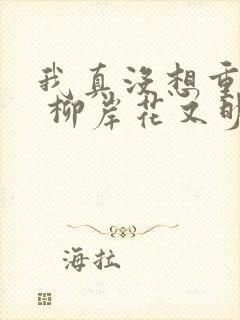 我真没想重
柳岸花又明
海拉